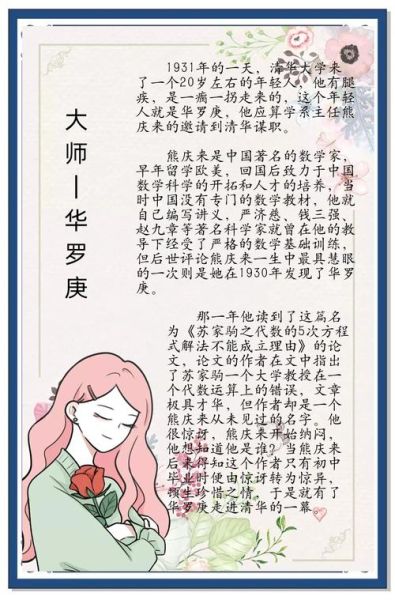 大师—华罗庚
1931年的一天，清华大学来
了一个20岁左右的年轻人，他有腿
疾，是一瘸一拐走来的，这个年轻
人就是华罗庚，他应算学系主任熊
庆来的邀请到清华谋职。
熊庆来是中国著名的数学家，
早年留学欧美，回国后致力于中国
数学科学的开拓和人才的培养，当
时中国没有专门的数学教材，他就
自己编写讲义，严济慈、钱三强、
赵九章等著名科学家就曾在他的教
导下经受了严格的数学基础训练，
但后世评论熊庆来一生中最具慧眼
的一次则是她在1930年发现了华罗
庚。
那一年他读到了这篇名
为《苏家驹之代数的5次方程
式解法不能成立理由》的论
文，论文的作者在文中指出
了苏家驹一个大学教授在一
个代数运算上的错误，文章
极具才华，但作者却是一个
熊庆来从未见过的名字。他
很惊讶，熊庆来开始纳闷，
他想知道他是谁？当熊庆来
后来得知这个作者只有初中
毕业时便由惊讶转为惊异，
顿生珍惜之情，于是就有了
华罗庚走进清华的一幕。